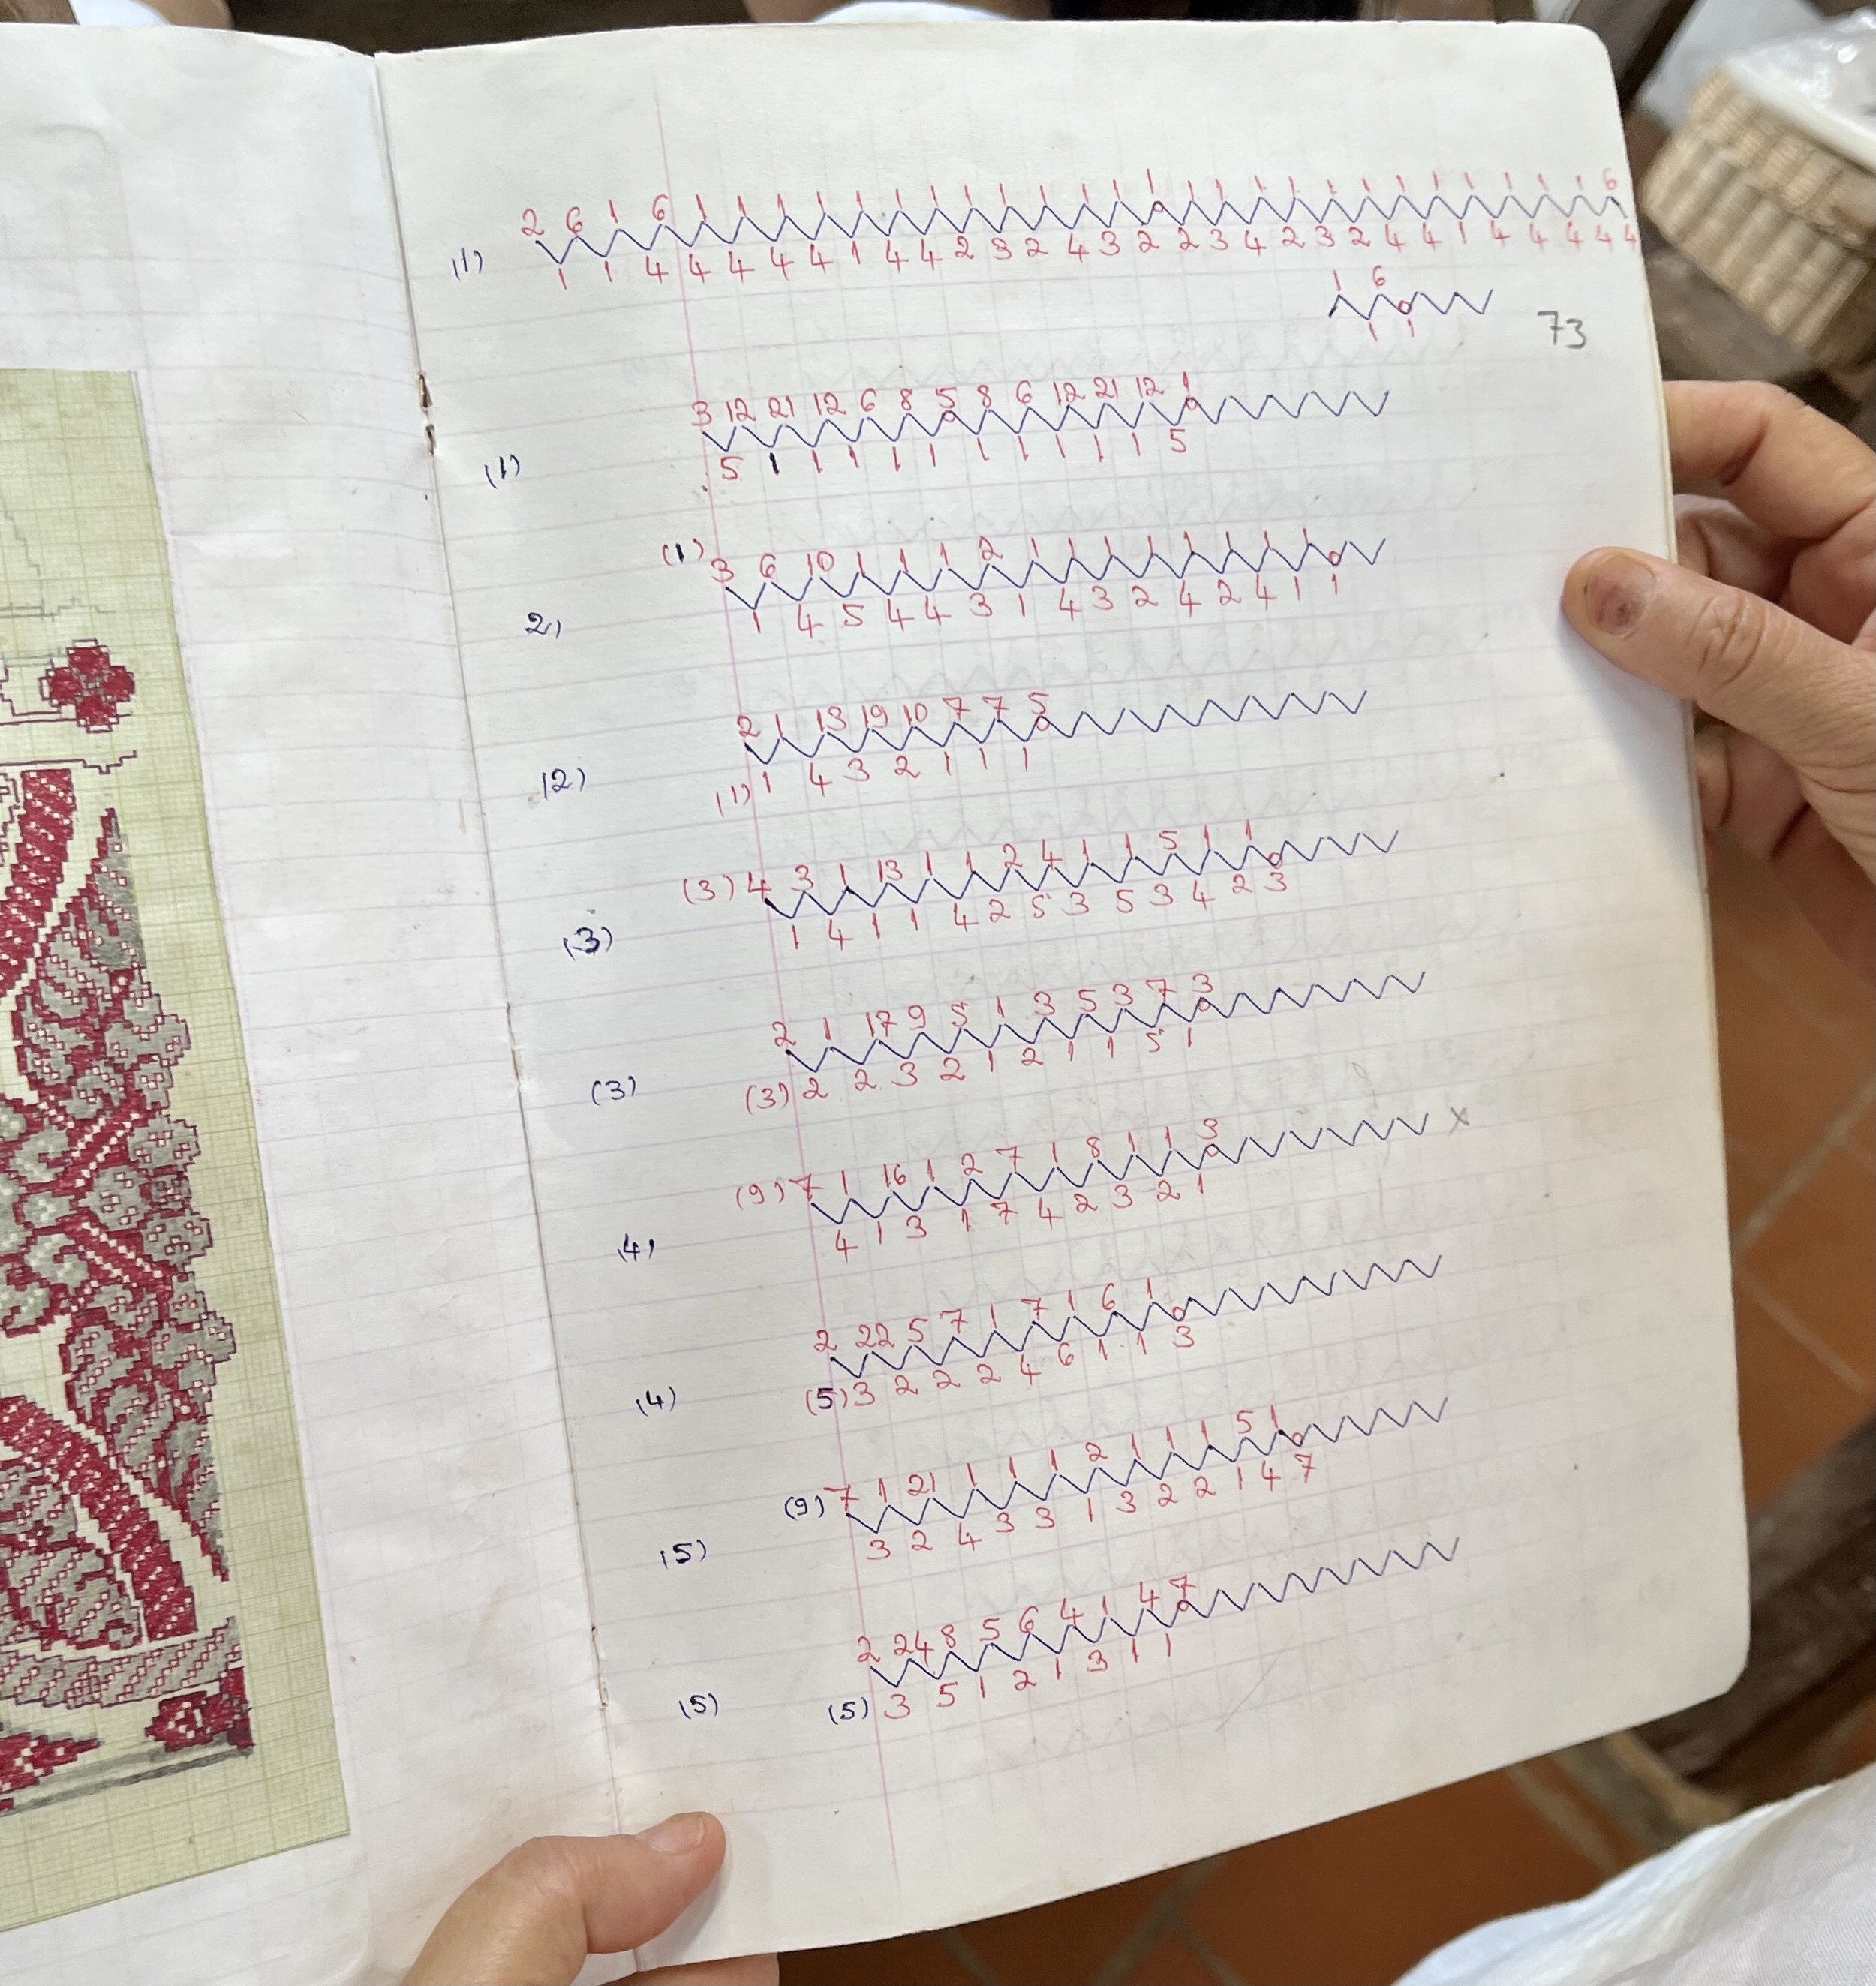 2 6 1 6 1 1 1 1 1 1 1 1 1 1 1 1 1 1 1 1 1 1 1 1 1 1 1 1 6
(1) 1 1 4 4 4 4 4 1 4 4 2 3 2 4 3 2 2 3 4 2 3 2 4 4 1 4 4 4 4 4
1 6
1 1
73
3 12 21 12 6 8 5 8 6 12 21 12 1
(1) 5 1 1 1 1 1 1 1 1 1 1 5
(1) 3 6 10 1 1 1 2 1 1 1 1 1 1 1 1
2) 1 4 5 4 4 3 1 4 3 2 4 2 4 1 1
2 1 13 19 10 7 7 5
(2) (1) 1 4 3 2 1 1 1
(3) 4 3 1 13 1 1 2 4 1 1 5 1 1
(3) 1 4 1 1 4 2 5 3 5 3 4 2 3
2 1 17 9 5 1 3 5 3 7 3
(3) (3) 2 2 3 2 1 2 1 1 5 1
(9) 7 1 16 1 2 7 1 8 1 1 3 x
(4) 4 1 3 1 7 4 2 3 2 1
2 22 5 7 1 7 1 6 1
(4) (5) 3 2 2 2 4 6 1 1 3
(9) 7 1 21 1 1 1 2 1 1 1 5 1
(5) 3 2 4 3 3 1 3 2 2 1 4 7
2 24 8 5 6 4 1 4 7
(5) (5) 3 5 1 2 1 3 1 1